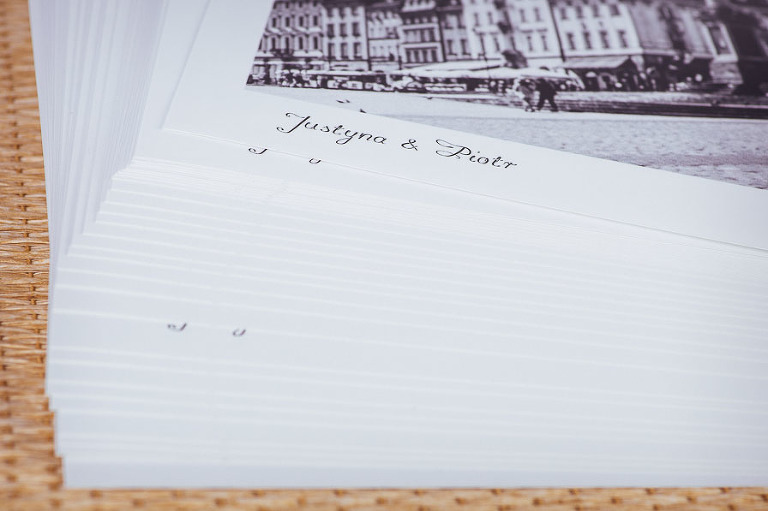 Justyna & Piotr